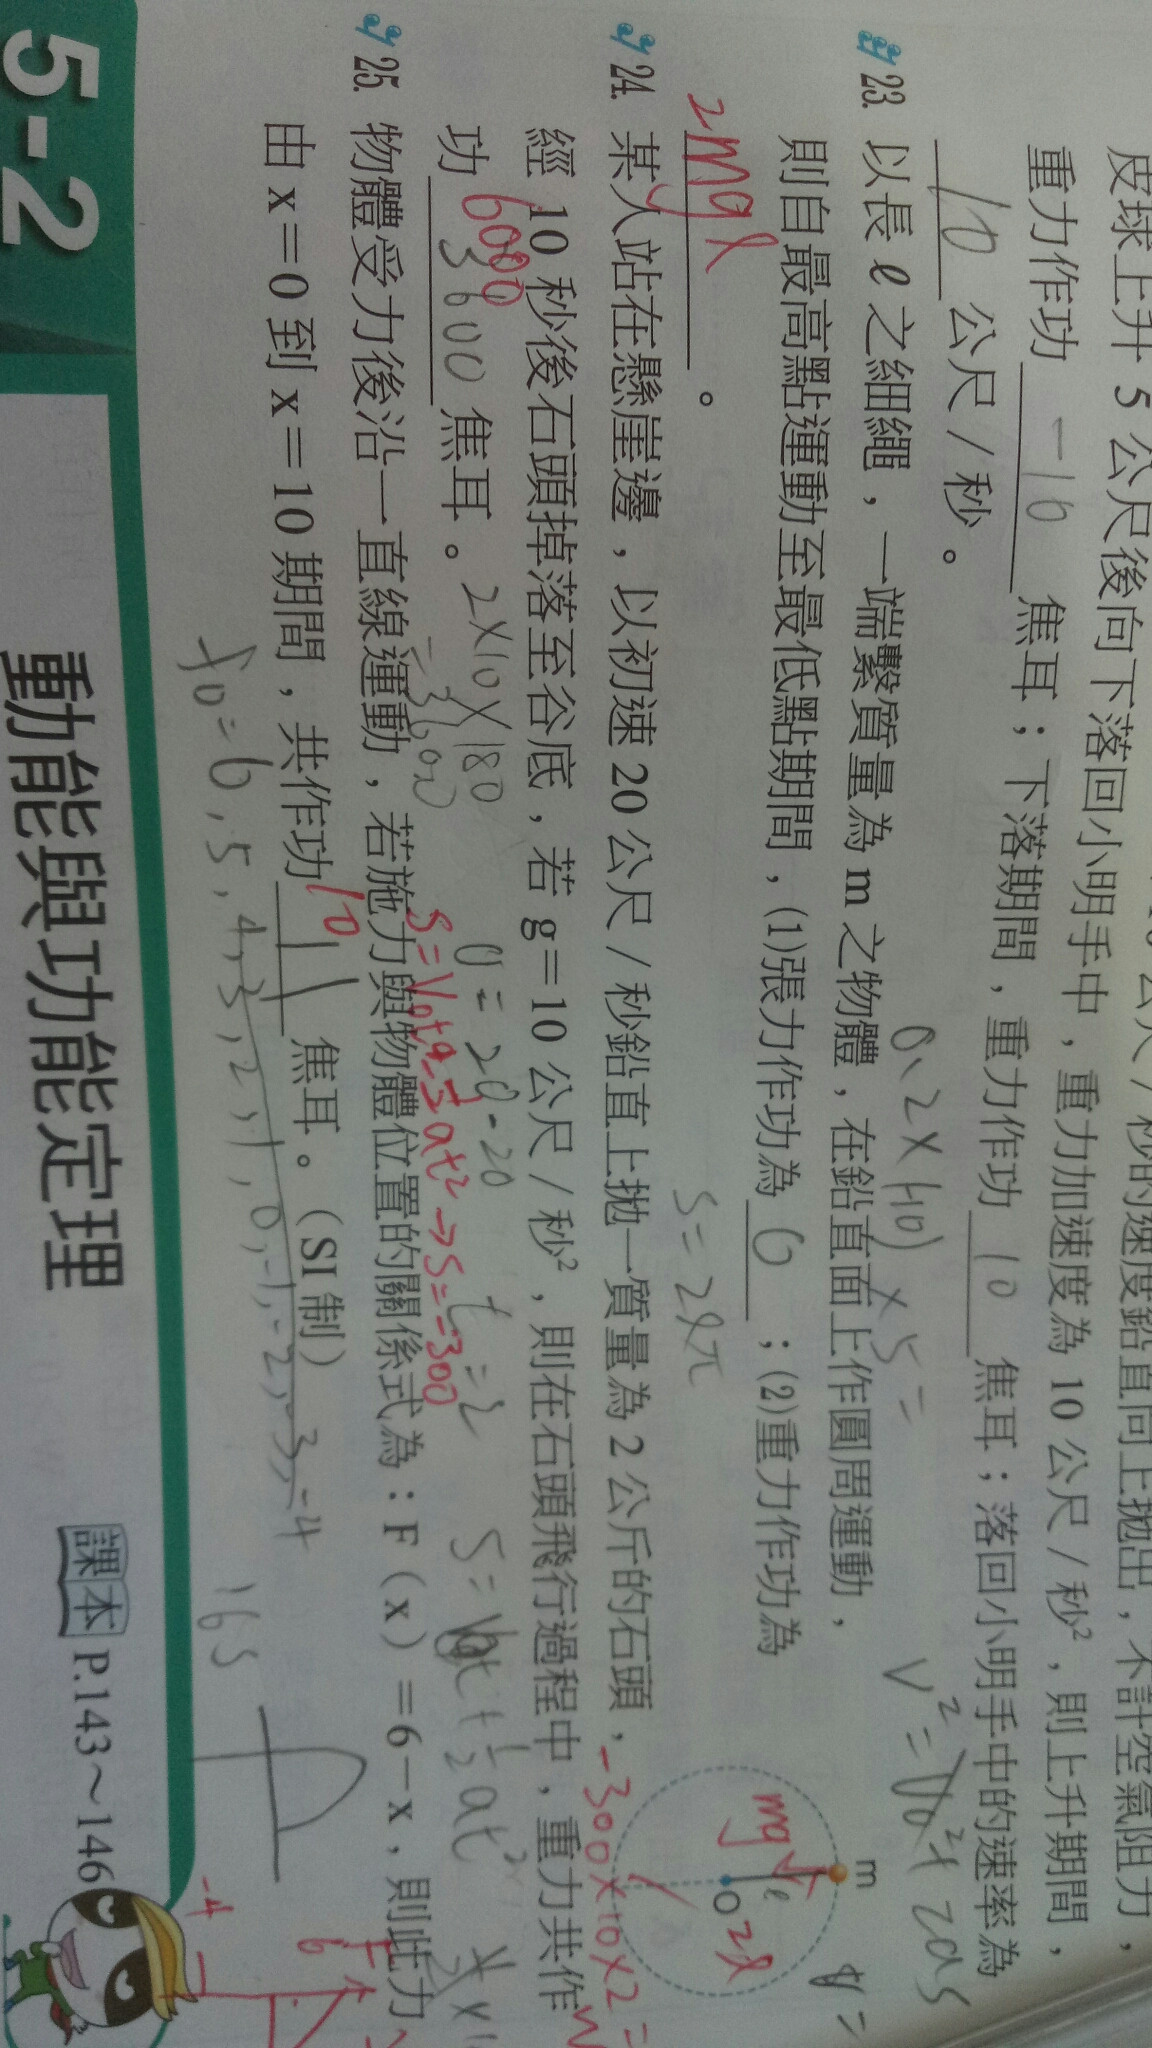 皮球上升 5 公尺後向下落回小明手中，重力加速度為 10 公尺／秒²，則上升期間，
重力作功 -10 焦耳；下落期間，重力作功 10 焦耳；落回小明手中的速率為
10 公尺／秒。
0.2×(-10)×5=
V²=V₀²+2as
23. 以長 ℓ 之細繩，一端繫質量為 m 之物體，在鉛直面上作圓周運動，
則自最高點運動至最低點期間，(1)張力作功為 0 ；(2)重力作功為
2mgl 。
S=2lπ
m
mg
ℓ
O
2l
24. 某人站在懸崖邊，以初速 20 公尺／秒鉛直上拋一質量為 2 公斤的石頭，
經 10 秒後石頭掉落至谷底，若 g＝10 公尺／秒²，則在石頭飛行過程中，重力共作
功 6000 3600 焦耳。
-300×10×2=
2×10×180
=3600
t=2
S=V₀t+½at²
S=V₀t+½at²→S=-300
25. 物體受力後沿一直線運動，若施力與物體位置的關係式為：F（x）＝6－x，則此力
由 x＝0 到 x＝10 期間，共作功 10 11 焦耳。（SI 制）
6,5,4,3,2,1,0,-1,-2,-3,-4
165
F
6
-4
5-2
動能與功能定理
課本 P.143～146